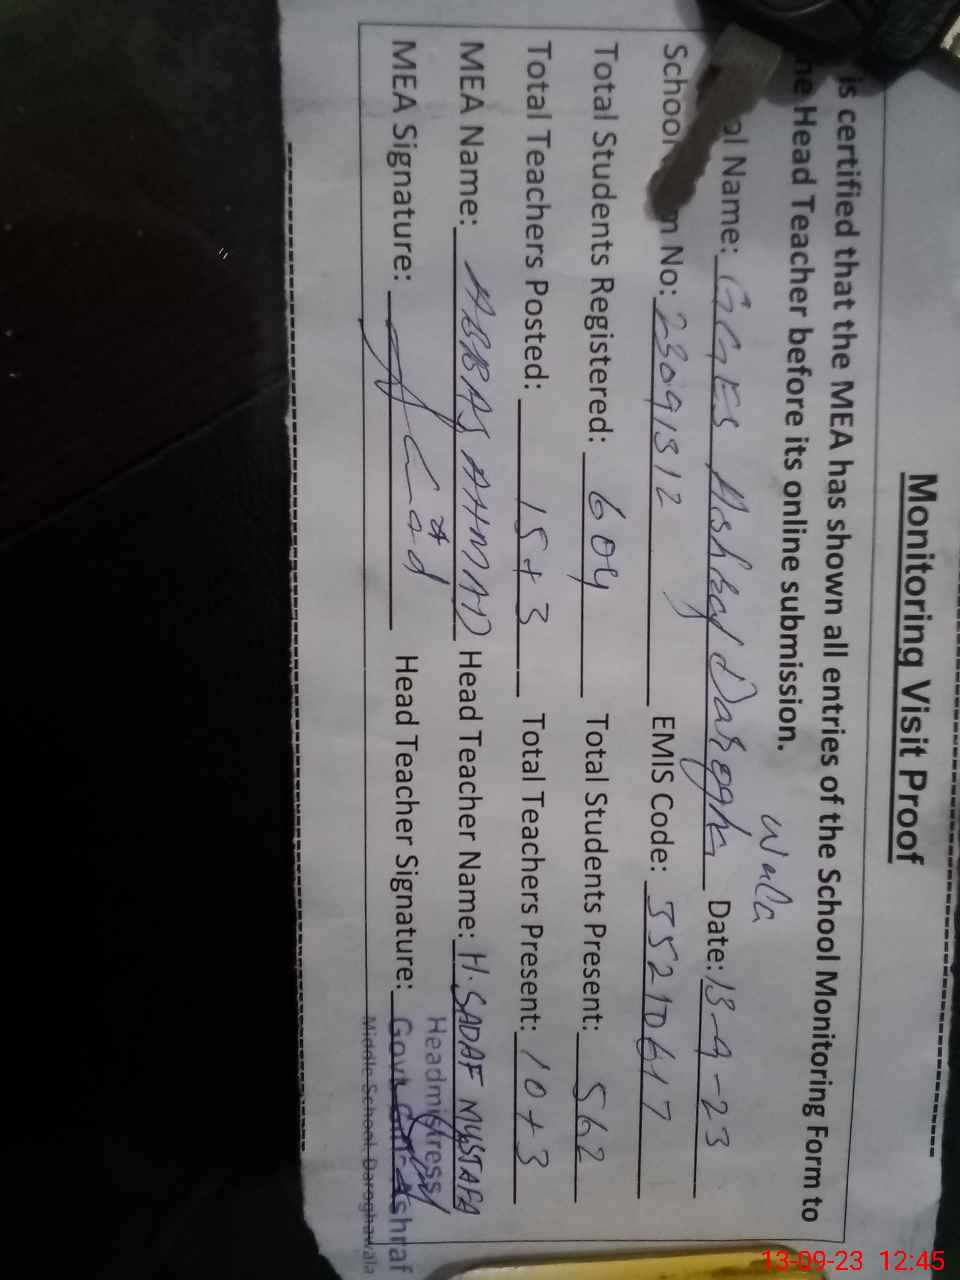 Monitoring Visit Proof
is certified that the MEA has shown all entries of the School Monitoring Form to
he Head Teacher before its online submission.
Wala
ol Name: GGES Ashraf Darogha Date: 13-9-23
School m No: 23091312 EMIS Code: 35210617
Total Students Registered: 604 Total Students Present: 562
Total Teachers Posted: 15+3 Total Teachers Present: 10+3
MEA Name: ABBAS AHMAD Head Teacher Name: H.SADAF MUSTAFA
MEA Signature: Head Teacher Signature:
Headmistress
Govt. Girl Ashraf
Middle School Daroghawala
13-09-23 12:45